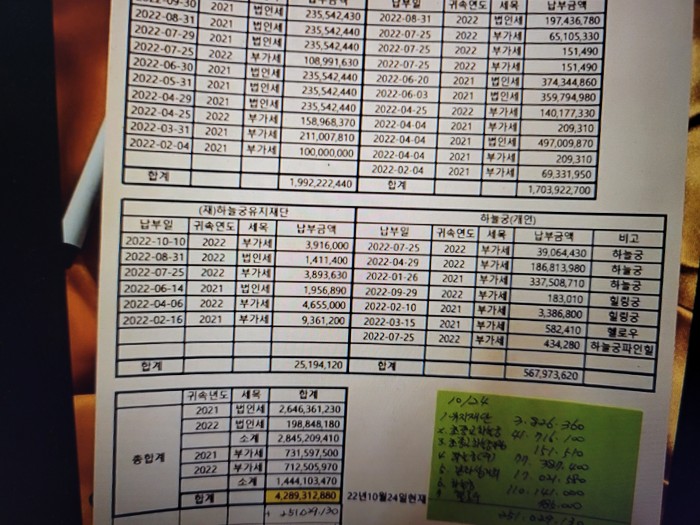 2021 법인세 235,542,430 2022-08-31 2022 법인세 197,436,780
2022-08-31 2021 법인세 235,542,440 2022-07-25 2022 부가세 65,105,330
2022-07-29 2021 법인세 235,542,440 2022-07-25 2022 부가세 151,490
2022-07-25 2022 부가세 108,991,630 2022-07-25 2022 부가세 151,490
2022-06-30 2021 법인세 235,542,440 2022-06-20 2021 법인세 374,344,860
2022-05-31 2021 법인세 235,542,440 2022-06-03 2021 법인세 359,794,980
2022-04-29 2021 법인세 235,542,440 2022-04-25 2022 부가세 140,177,330
2022-04-25 2022 부가세 158,968,370 2022-04-04 2021 부가세 209,310
2022-03-31 2021 법인세 211,007,810 2022-04-04 2021 법인세 497,009,870
2022-02-04 2021 부가세 100,000,000 2022-04-04 2021 부가세 209,310
2022-02-04 2021 부가세 69,331,950
합계 1,992,222,440 합계 1,703,922,700
(재)하늘궁유지재단 하늘궁(개인)
납부일 귀속연도 세목 납부금액 납부일 귀속연도 세목 납부금액 비고
2022-10-10 2022 부가세 3,916,000 2022-07-25 2022 부가세 39,064,430 하늘궁
2022-08-31 2022 법인세 1,411,400 2022-04-29 2022 부가세 186,813,980 하늘궁
2022-07-25 2022 부가세 3,893,630 2022-01-26 2021 부가세 337,508,710 하늘궁
2022-06-14 2021 법인세 1,956,890 2022-09-29 2022 부가세 183,010 힐링궁
2022-04-06 2022 부가세 4,655,000 2022-02-10 2021 부가세 3,386,800 힐링궁
2022-02-16 2021 부가세 9,361,200 2022-03-15 2021 부가세 582,410 헬로우
2022-07-25 2022 부가세 434,280 하늘궁파인힐
합계 25,194,120 합계 567,973,620
귀속년도 세목 합계
2021 법인세 2,646,361,230
2022 법인세 198,848,180
소계 2,845,209,410
종합계 2021 부가세 731,597,500
2022 부가세 712,505,970
소계 1,444,103,470
합계 4,289,312,880 22년10월24일현재
+ 251,029,130
10/24
3.826.360
41.716.100
151.510
77.387.400
17.021.580
110.141.000